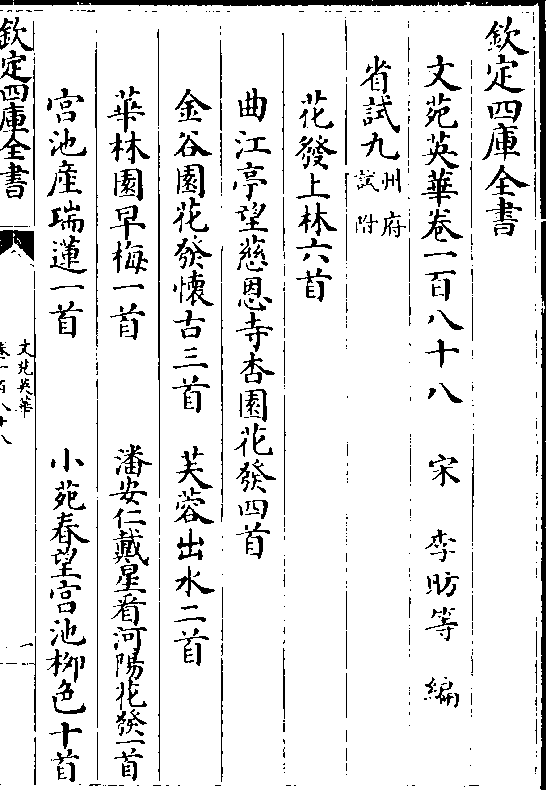 欽定四庫全書
文苑英華卷一百八十八　宋　李昉等　編
省試九州府試附
花發上林六首
曲江亭望慈恩寺杏園花發四首
金谷園花發懷古三首　芙蓉出水二首
華林園早梅一首　潘安仁戴星看河陽花發一首
宮池產瑞蓮一首　小苑春望宮池柳色十首
欽定四庫全書
文苑英華
卷一百八十八
一